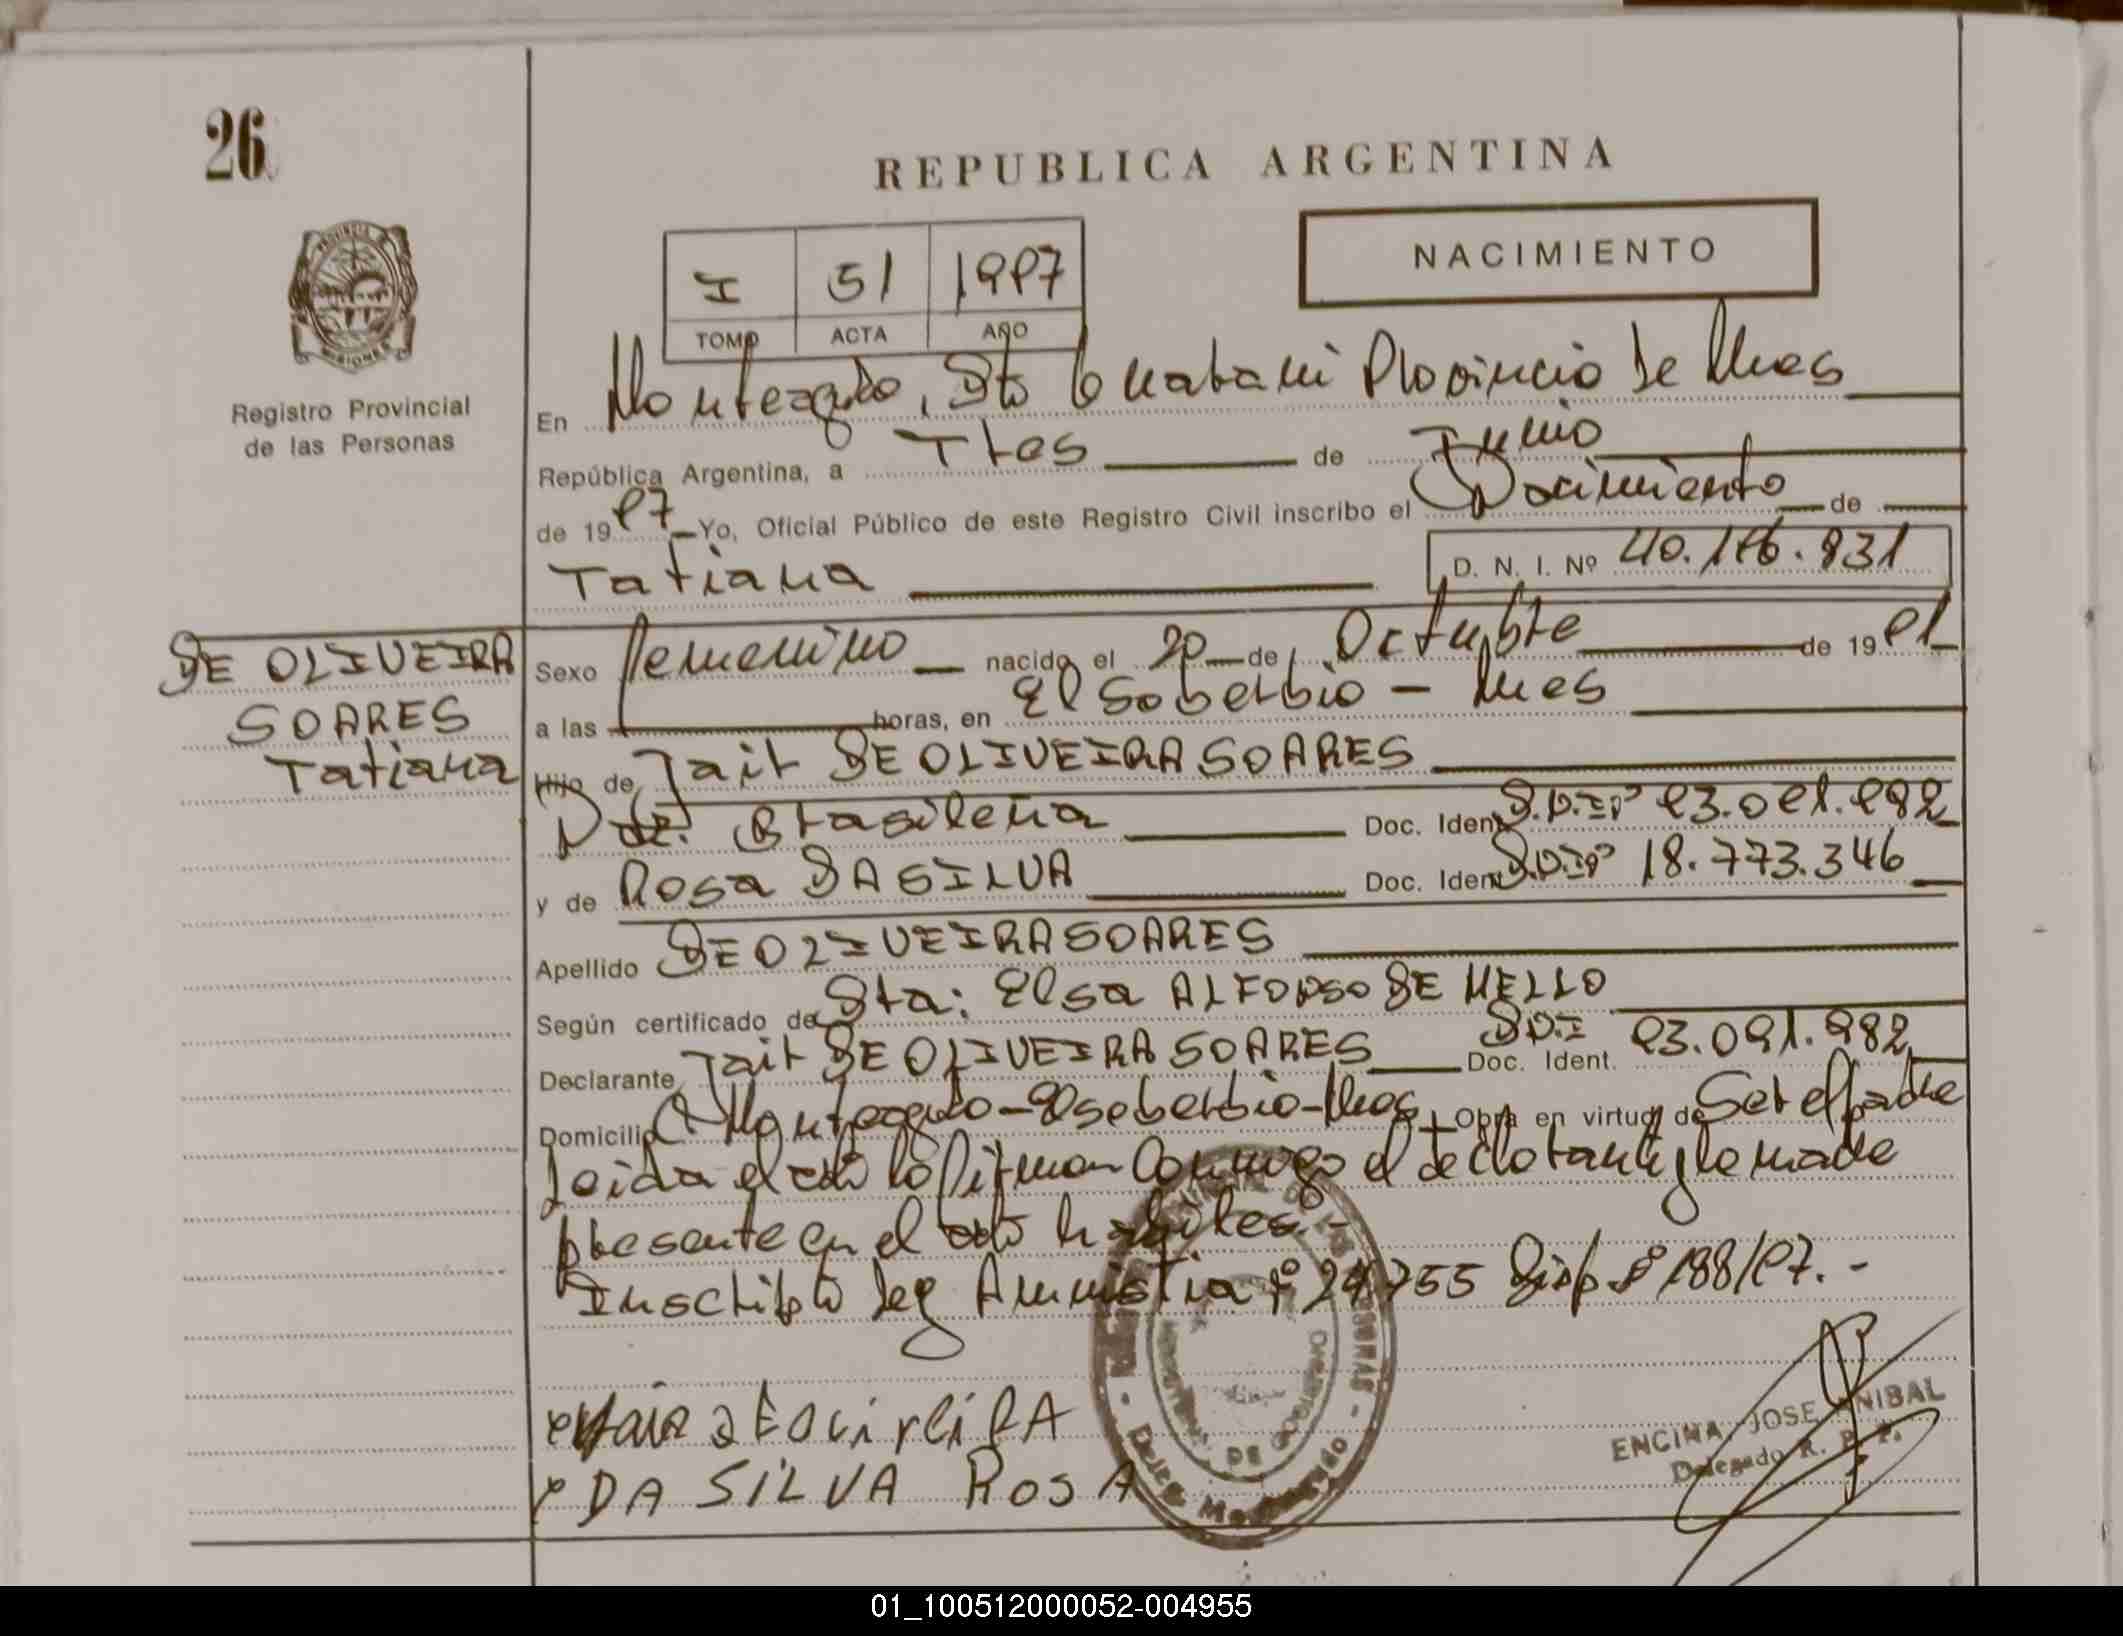 26
REPUBLICA ARGENTINA
NACIMIENTO
I 51 1997
TOMO ACTA AÑO
PROVINCIA DE
MISIONES
Registro Provincial
de las Personas
En Monteagudo, Dto Guarani Provincia de Mnes
República Argentina, a Tres de Junio
de 1997 Yo, Oficial Público de este Registro Civil inscribo el Nacimiento de
Tatiana
D. N. I. Nº 40.116.931
DE OLIVEIRA
SOARES
Tatiana
Sexo Femenino nacido el 20 de Octubre de 1991
a las horas, en El Soberbio - Mnes
Hijo de Jair DE OLIVEIRA SOARES
Nac. Brasileña Doc. Ident 93.091.982
y de Rosa DA SILVA Doc. Ident 18.773.346
Apellido DE OLIVEIRA SOARES
Según certificado de Sta: Elsa ALFONSO DE MELLO
Declarante Jair DE OLIVEIRA SOARES Doc. Ident. 93.091.982
Domicilio Monteagudo - El Soberbio - Mnes Obra en virtud de Ser el padre
Leida el acta la firman Conmigo el declarante y la madre
presente en el acto habiles.-
Inscripto Ley Amnistia Nº 24755 Disp Nº 188/97.-
DA SILVA ROSA
DE LAS PERSONAS
ENCINA, JOSE ANIBAL
Delegado R. P. P.
01_100512000052-004955